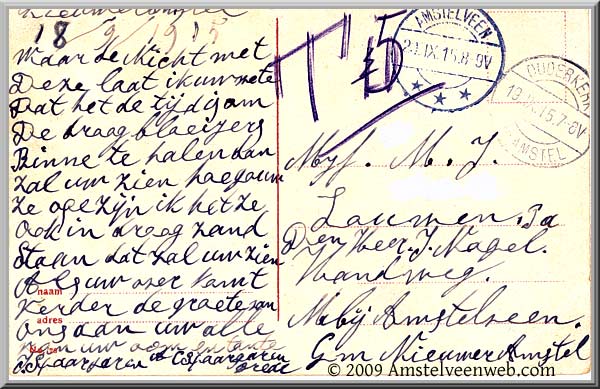 18/9/1915
Waarde Nicht met
Deze laat ik uw wete
Dat het de tijd is om
De draag blaeizers
Binne te halen dan
zal uw zien hoe gouw
ze oge zijn ik het ze
ook in draag zand
Staan dat zal uw zien
Als uw over komt
naam
Verder de groete van
adres
ons aan uw alle
van uw oom en tante
C Spaargaren
T
5
AMSTELVEEN
21.IX.15.8-9V
OUDERKERK
15.7-8V
AMSTEL
Mejf. M. J.
Laumen. Pa
Den Heer. J. Nagel.
Handweg.
bij Amstelveen.
Gm Nieuwer Amstel
© 2009 Amstelveenweb.com